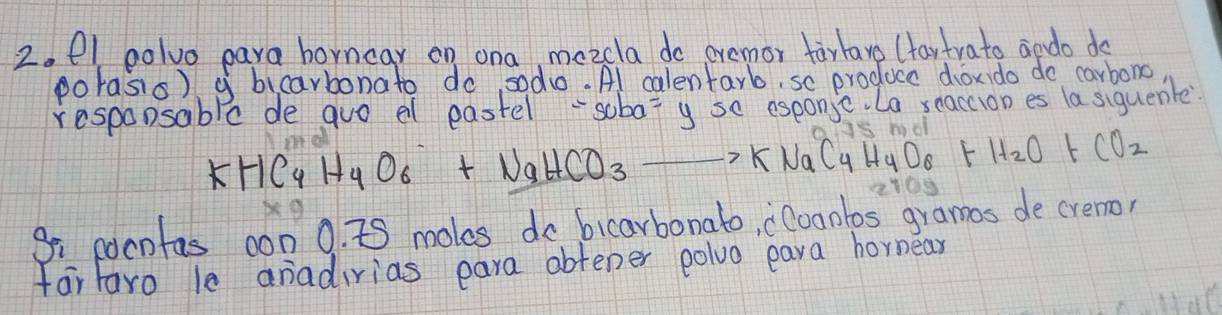 2. El polvo para hornear en una mezcla de cremor tártaro (tartrato ácido de
potasio) y bicarbonato de sodio. Al calentarlo, se produce dióxido de carbono,
responsable de que el pastel "suba" y se esponje. La reacción es la siguiente:
1 mol 0.75 mol
KHC4H4O6 + NaHCO3 → KNaC4H4O6 + H2O + CO2
x g 210g
Si cuentas con 0.75 moles de bicarbonato, ¿Cuantos gramos de cremor
tártaro le añadirias para obtener polvo para hornear